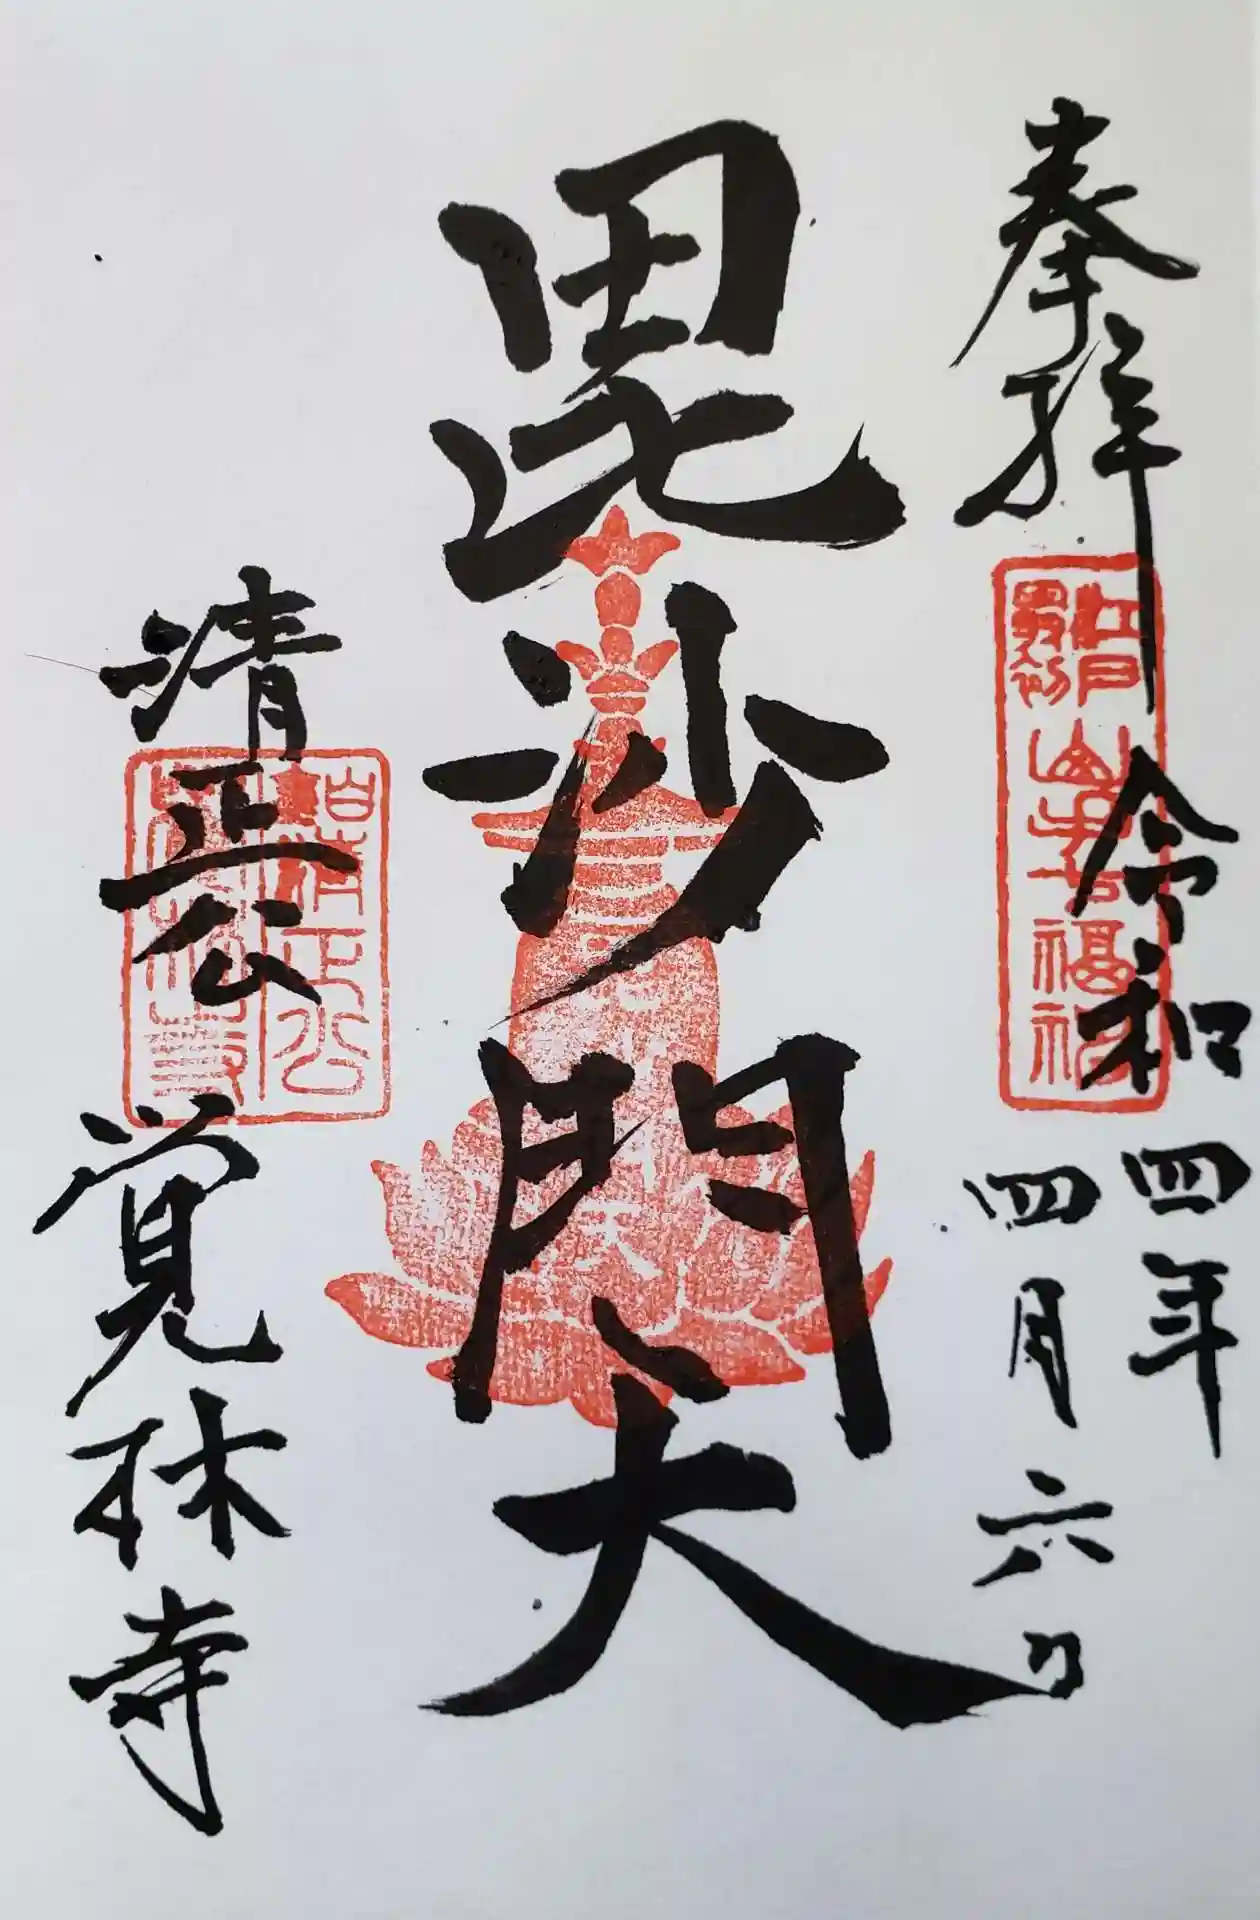 奉拝
江戸
最初
山手七福神
令和四年
四月六日
毘沙門天
清正公
覚林寺